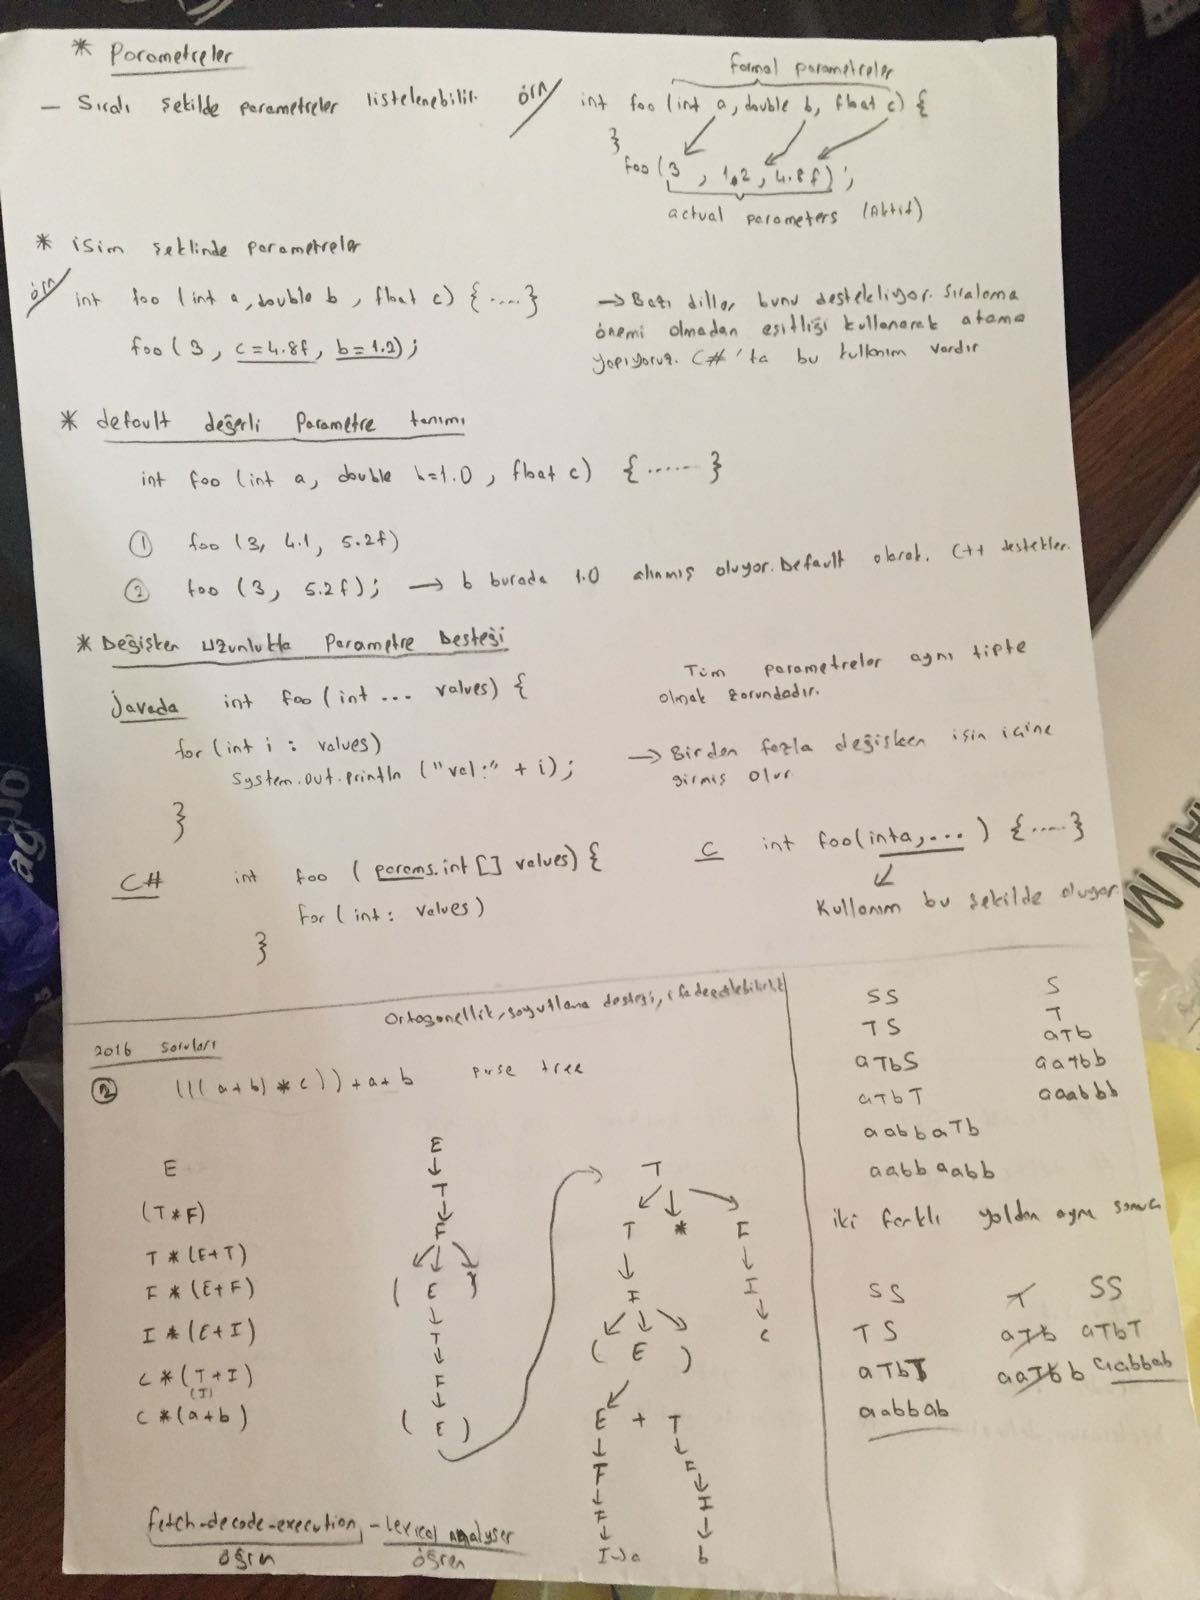 * Parametreler
– Sıralı şekilde parametreler listelenebilir.
örn/
formal parametreler
int foo (int a, double b, float c) {
}
foo (3 , 1.2 , 4.8f) ;
actual parameters (Aktif)
* isim şeklinde parametreler
örn/
int foo (int a, double b , float c) { ..... }
foo ( 3 , c=4.8f, b=1.2) ;
→ Bazı diller bunu destekliyor. Sıralama
önemi olmadan eşitliği kullanarak atama
yapıyoruz. C# 'ta bu kullanım vardır
* default değerli Parametre tanımı
int foo (int a, double b=1.0 , float c) { ...... }
① foo (3, 4.1 , 5.2f)
② foo (3, 5.2f) ; → b burada 1.0 alınmış oluyor. Default olarak. C++ destekler.
* Değişken Uzunlukta Parametre Desteği
Javada int foo (int ... values) {
for (int i : values)
System.out.println ("val:" + i) ;
}
Tüm parametreler aynı tipte
olmak zorundadır.
→ Birden fazla değişken işin içine
girmiş olur
C# int foo ( params.int [] values) {
for ( int : values)
}
C int foo(inta, ... ) { ..... }
Kullanım bu şekilde oluyor.
Ortogonellik, soyutlama desteği, ifade edilebilirlik
2016 Soruları
② (((a+b) * c)) + a + b parse tree
E
(T*F)
T * (E+T)
F * (E+F)
I * (E+I)
C * (T+I)
(I)
C * (a+b)
E
T
F
( E )
T
F
( E )
T
T * F
F I
( E ) c
E + T
T F
F I
I→a b
fetch-decode-execution, – Lexical analyser
öğren öğren
SS
TS
aTbS
aTbT
aabbaTb
aabbaabb
S
T
aTb
aaTbb
aaabbb
iki farklı yoldan aynı sonuca
SS
TS
aTbT
aabbab
T
aTb
aaTbb
SS
aTbT
aabbab